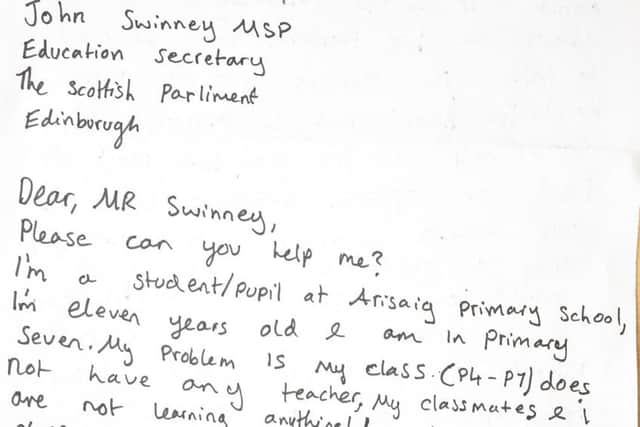 John Swinney MSP
Education secretary
The Scottish Parliment
Edinborugh
Dear, MR Swinney,
Please can you help me?
I'm a student/pupil at Arisaig Primary School,
I'm eleven years old & am in Primary
Seven. My Problem is my class. (P4-P7) does
not have any teacher, My classmates & i
are not learning anything!!